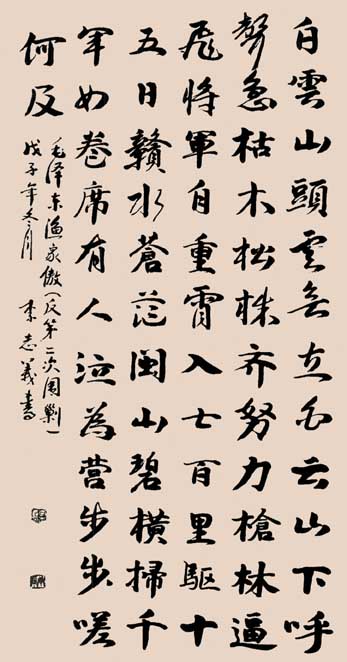 白雲山頭雲欲立白云山下呼
聲急枯木松株齐努力槍林逼
飛將軍自重霄入七百里驅十
五日贛水蒼茫閩山碧橫掃千
軍如卷席有人泣為营步步嗟
何及
毛泽东渔家傲(反第二次围剿)
戊子年冬月 李志義書